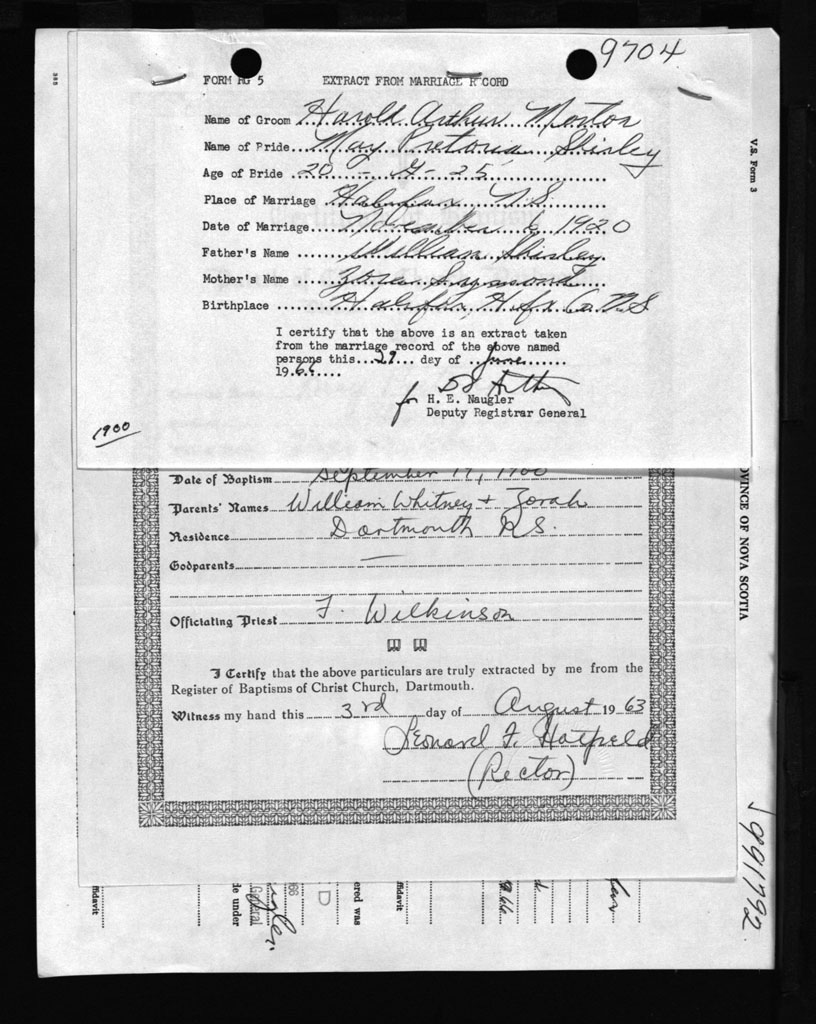 9704
FORM RG 5 EXTRACT FROM MARRIAGE R CORD
Name of Groom Harold Arthur Morton
Name of Pride May Pretoria Shirley
Age of Bride 20 - G - 25
Place of Marriage Halifax N.S.
Date of Marriage November 6, 1920
Father's Name William Shirley
Mother's Name Symonds
Birthplace Halifax, Hfx Co. N.S
I certify that the above is an extract taken
from the marriage record of the above named
persons this 29 day of June
1966
for H. E. Naugler
Deputy Registrar General
1900
Date of Baptism September 17, 1900
Parents' Names William Whitney + Zorah
Residence Dartmouth N.S.
Godparents —
Officiating Priest F. Wilkinson
I Certify that the above particulars are truly extracted by me from the
Register of Baptisms of Christ Church, Dartmouth.
Witness my hand this 3rd day of August 1963
Leonard F. Hatfield
(Rector)
V.S. Form 3
OVINCE OF NOVA SCOTIA
991792
385
ffidavit
le under
General
66
D
ered was
ffidavit